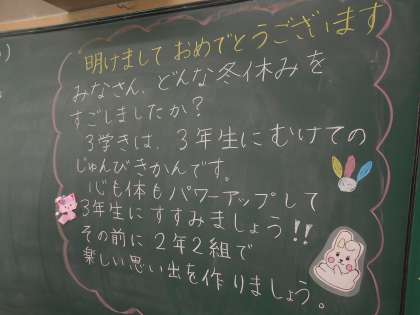 明けまして おめでとうございます
みなさん、どんな冬休みを
すごしましたか？
3学きは、3年生にむけての
じゅんびきかんです。
心も体もパワーアップして
3年生にすすみましょう!!
その前に2年2組で
楽しい思い出を作りましょう。